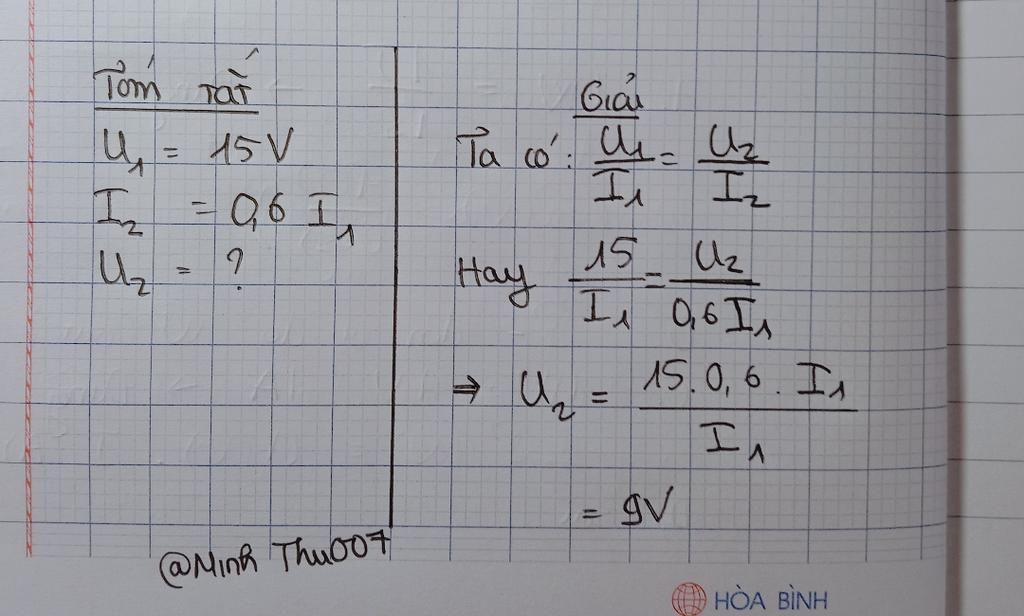 Tóm tắt
U₁ = 15V
I₂ = 0,6 I₁
U₂ = ?
Giải
Ta có: U₁/I₁ = U₂/I₂
Hay 15/I₁ = U₂/0,6I₁
⇒ U₂ = 15.0,6.I₁/I₁
= 9V
@Minh Thu007
HÒA BÌNH